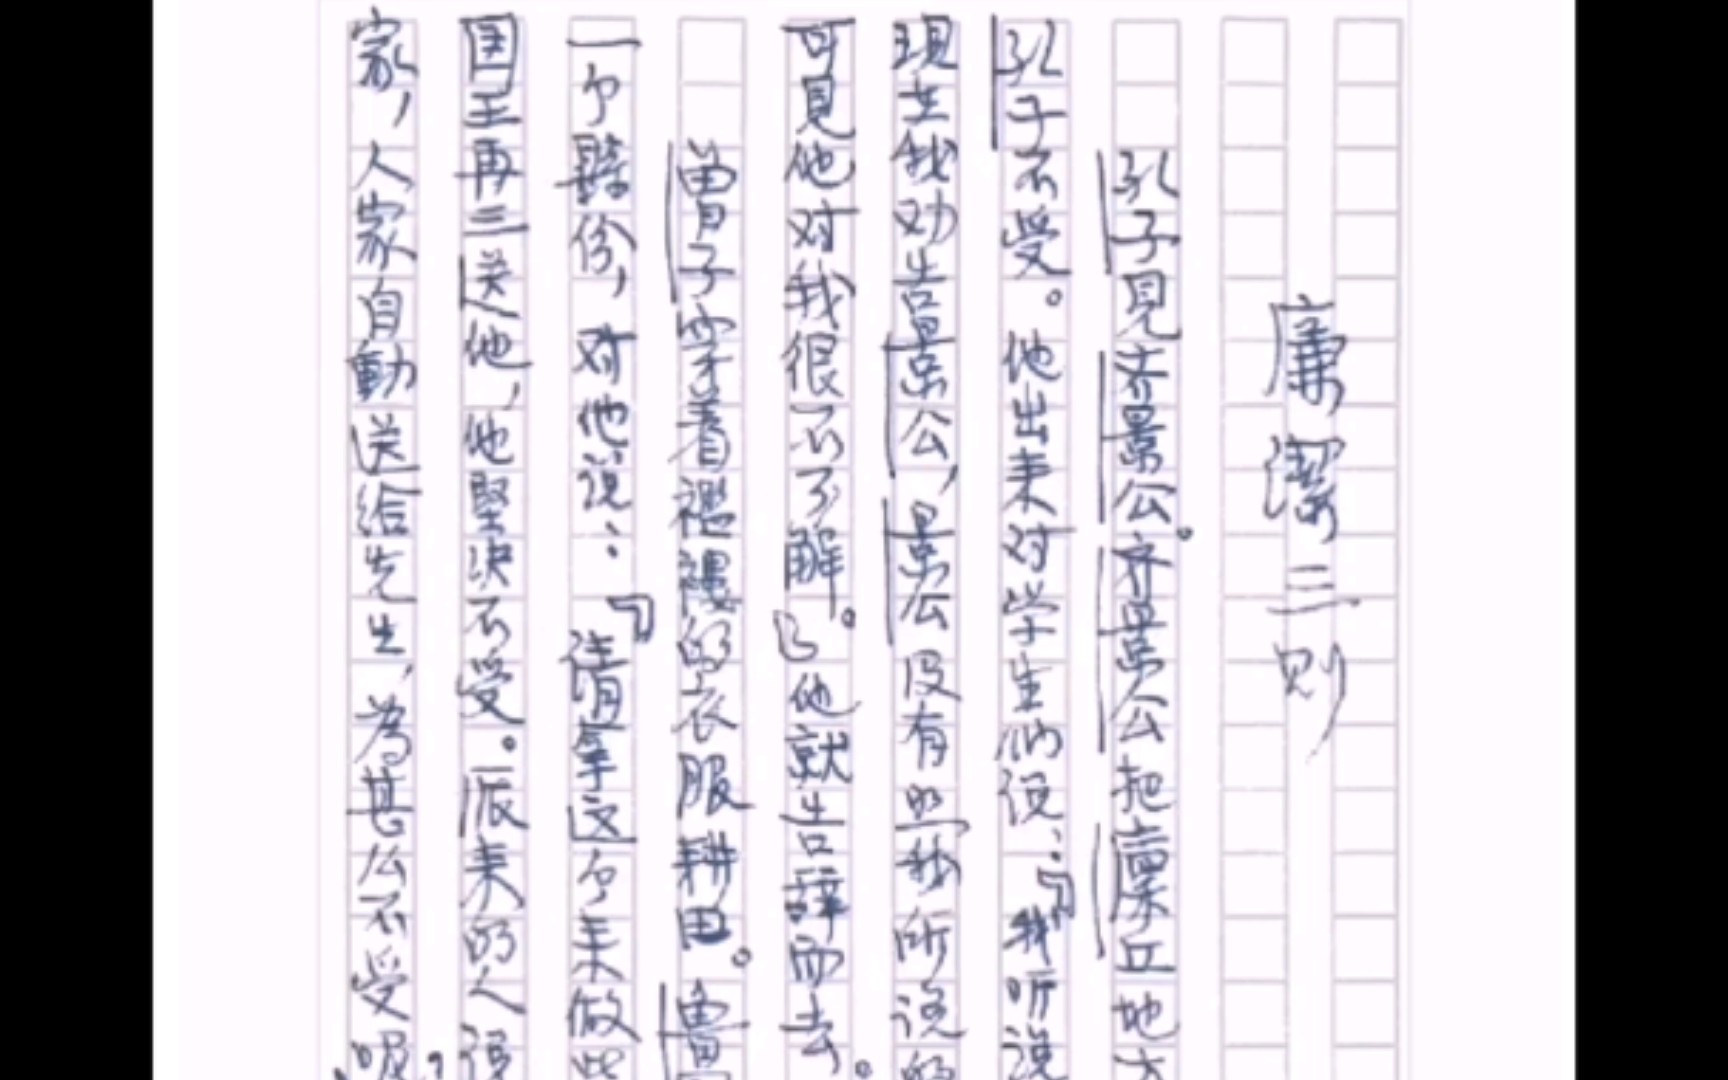 廉潔三则
孔子見齐景公。齐景公把廪丘地方
孔子不受。他出来对学生们说：『我听说
現在我劝告景公，景公没有照我所说的
可見他对我很不了解。』他就告辞而去。
曾子穿着襤褸的衣服耕田。魯
一个縣份，对他说：『请拿这个来做些
国王再三送他，他堅决不受。派来的人说
家，人家自動送给先生，为甚么不受呢